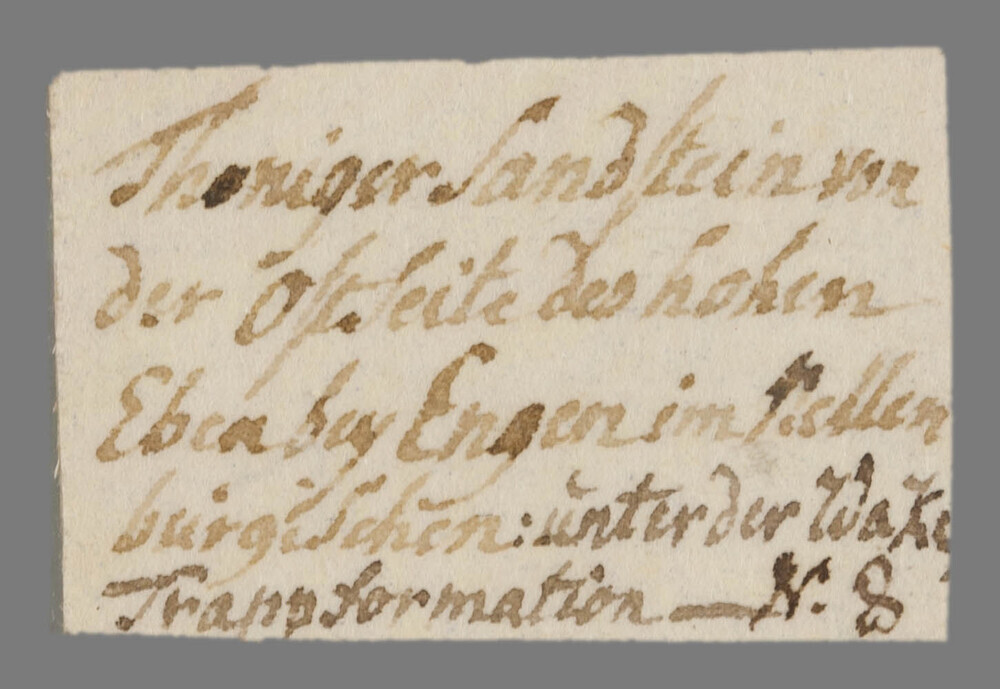 Thoniger Sandstein von
der Ostseite des hohen
Eben bey Engen im Nellen
burgischen: unter der Wake
Trappformation — N. 8